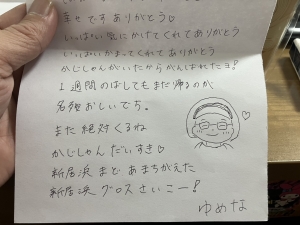 幸せです ありがとう♡
いっぱい気にかけてくれてありがとう
いっぱいかまってくれてありがとう
かじしゃんがいたからがんばれたよ!
1週間のはしでもまだ帰るのが
名残おしいでち。
また絶対くるね
かじしゃんだいすき♡
新居浜 まど、あまちがえた
新居浜 グロス さいこー!
ゆめな